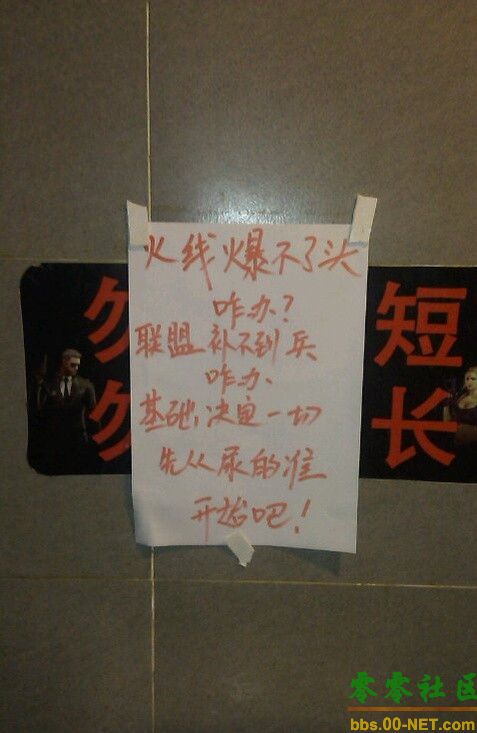 火线爆不了头
咋办?
联盟补不到兵
咋办、
基础,决定一切
先从尿的准
开始吧!
勿 短
勿 长
零零社区
bbs.00-NET.com